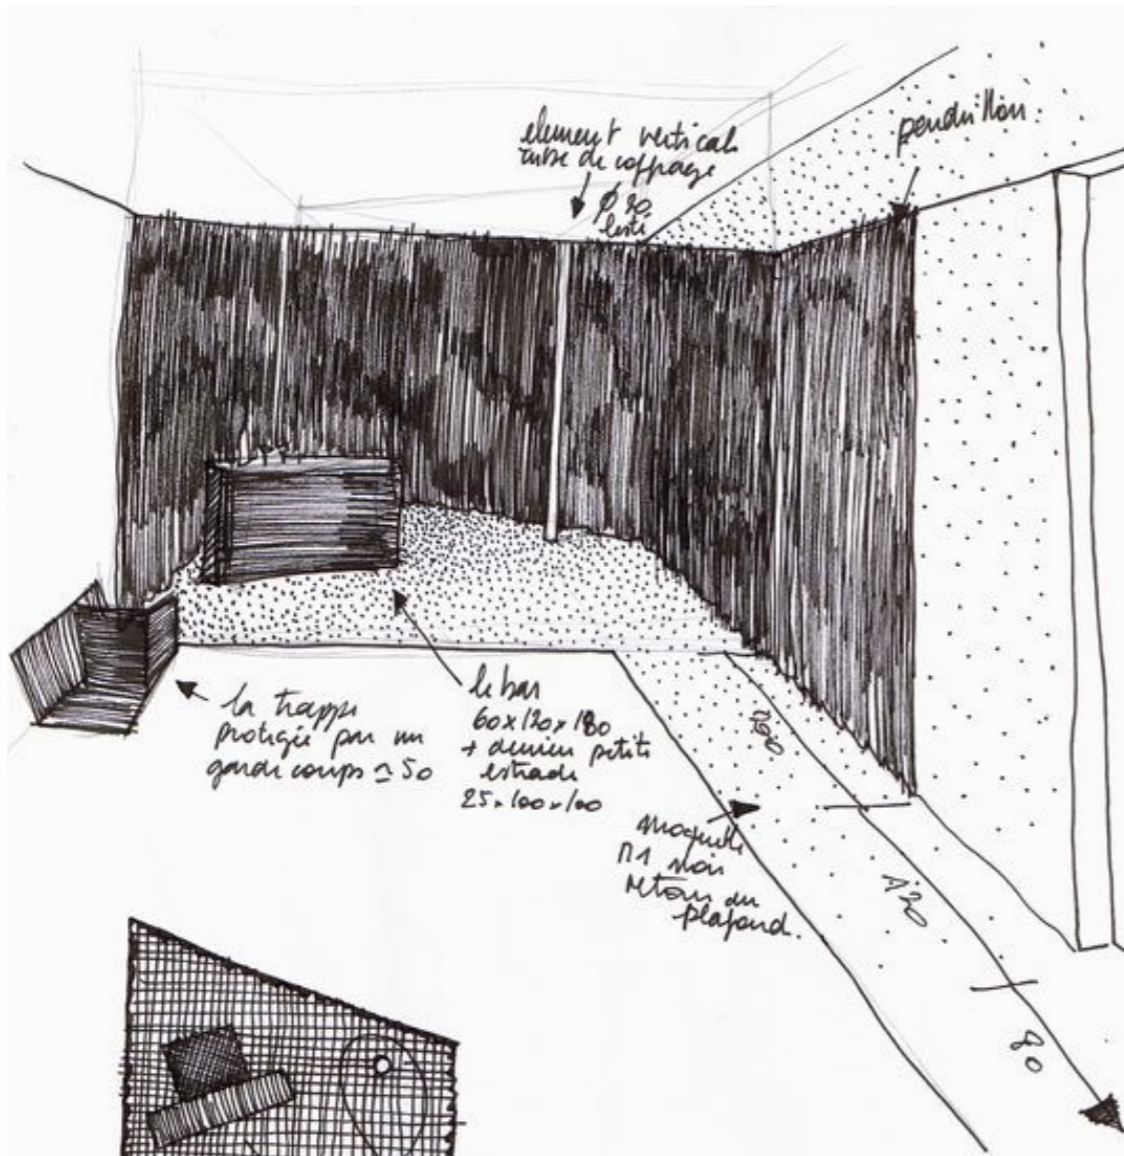 element vertical
tube de coffrage
Ø 20
lesté
pendrillon
la trappe
protegée par un
garde corps ≃ 50
le bar
60 x 120 x 180
+ derriere petite
estrade
25 x 100 x 100
moquette
M1 noir
retour au
plafond.
120
80